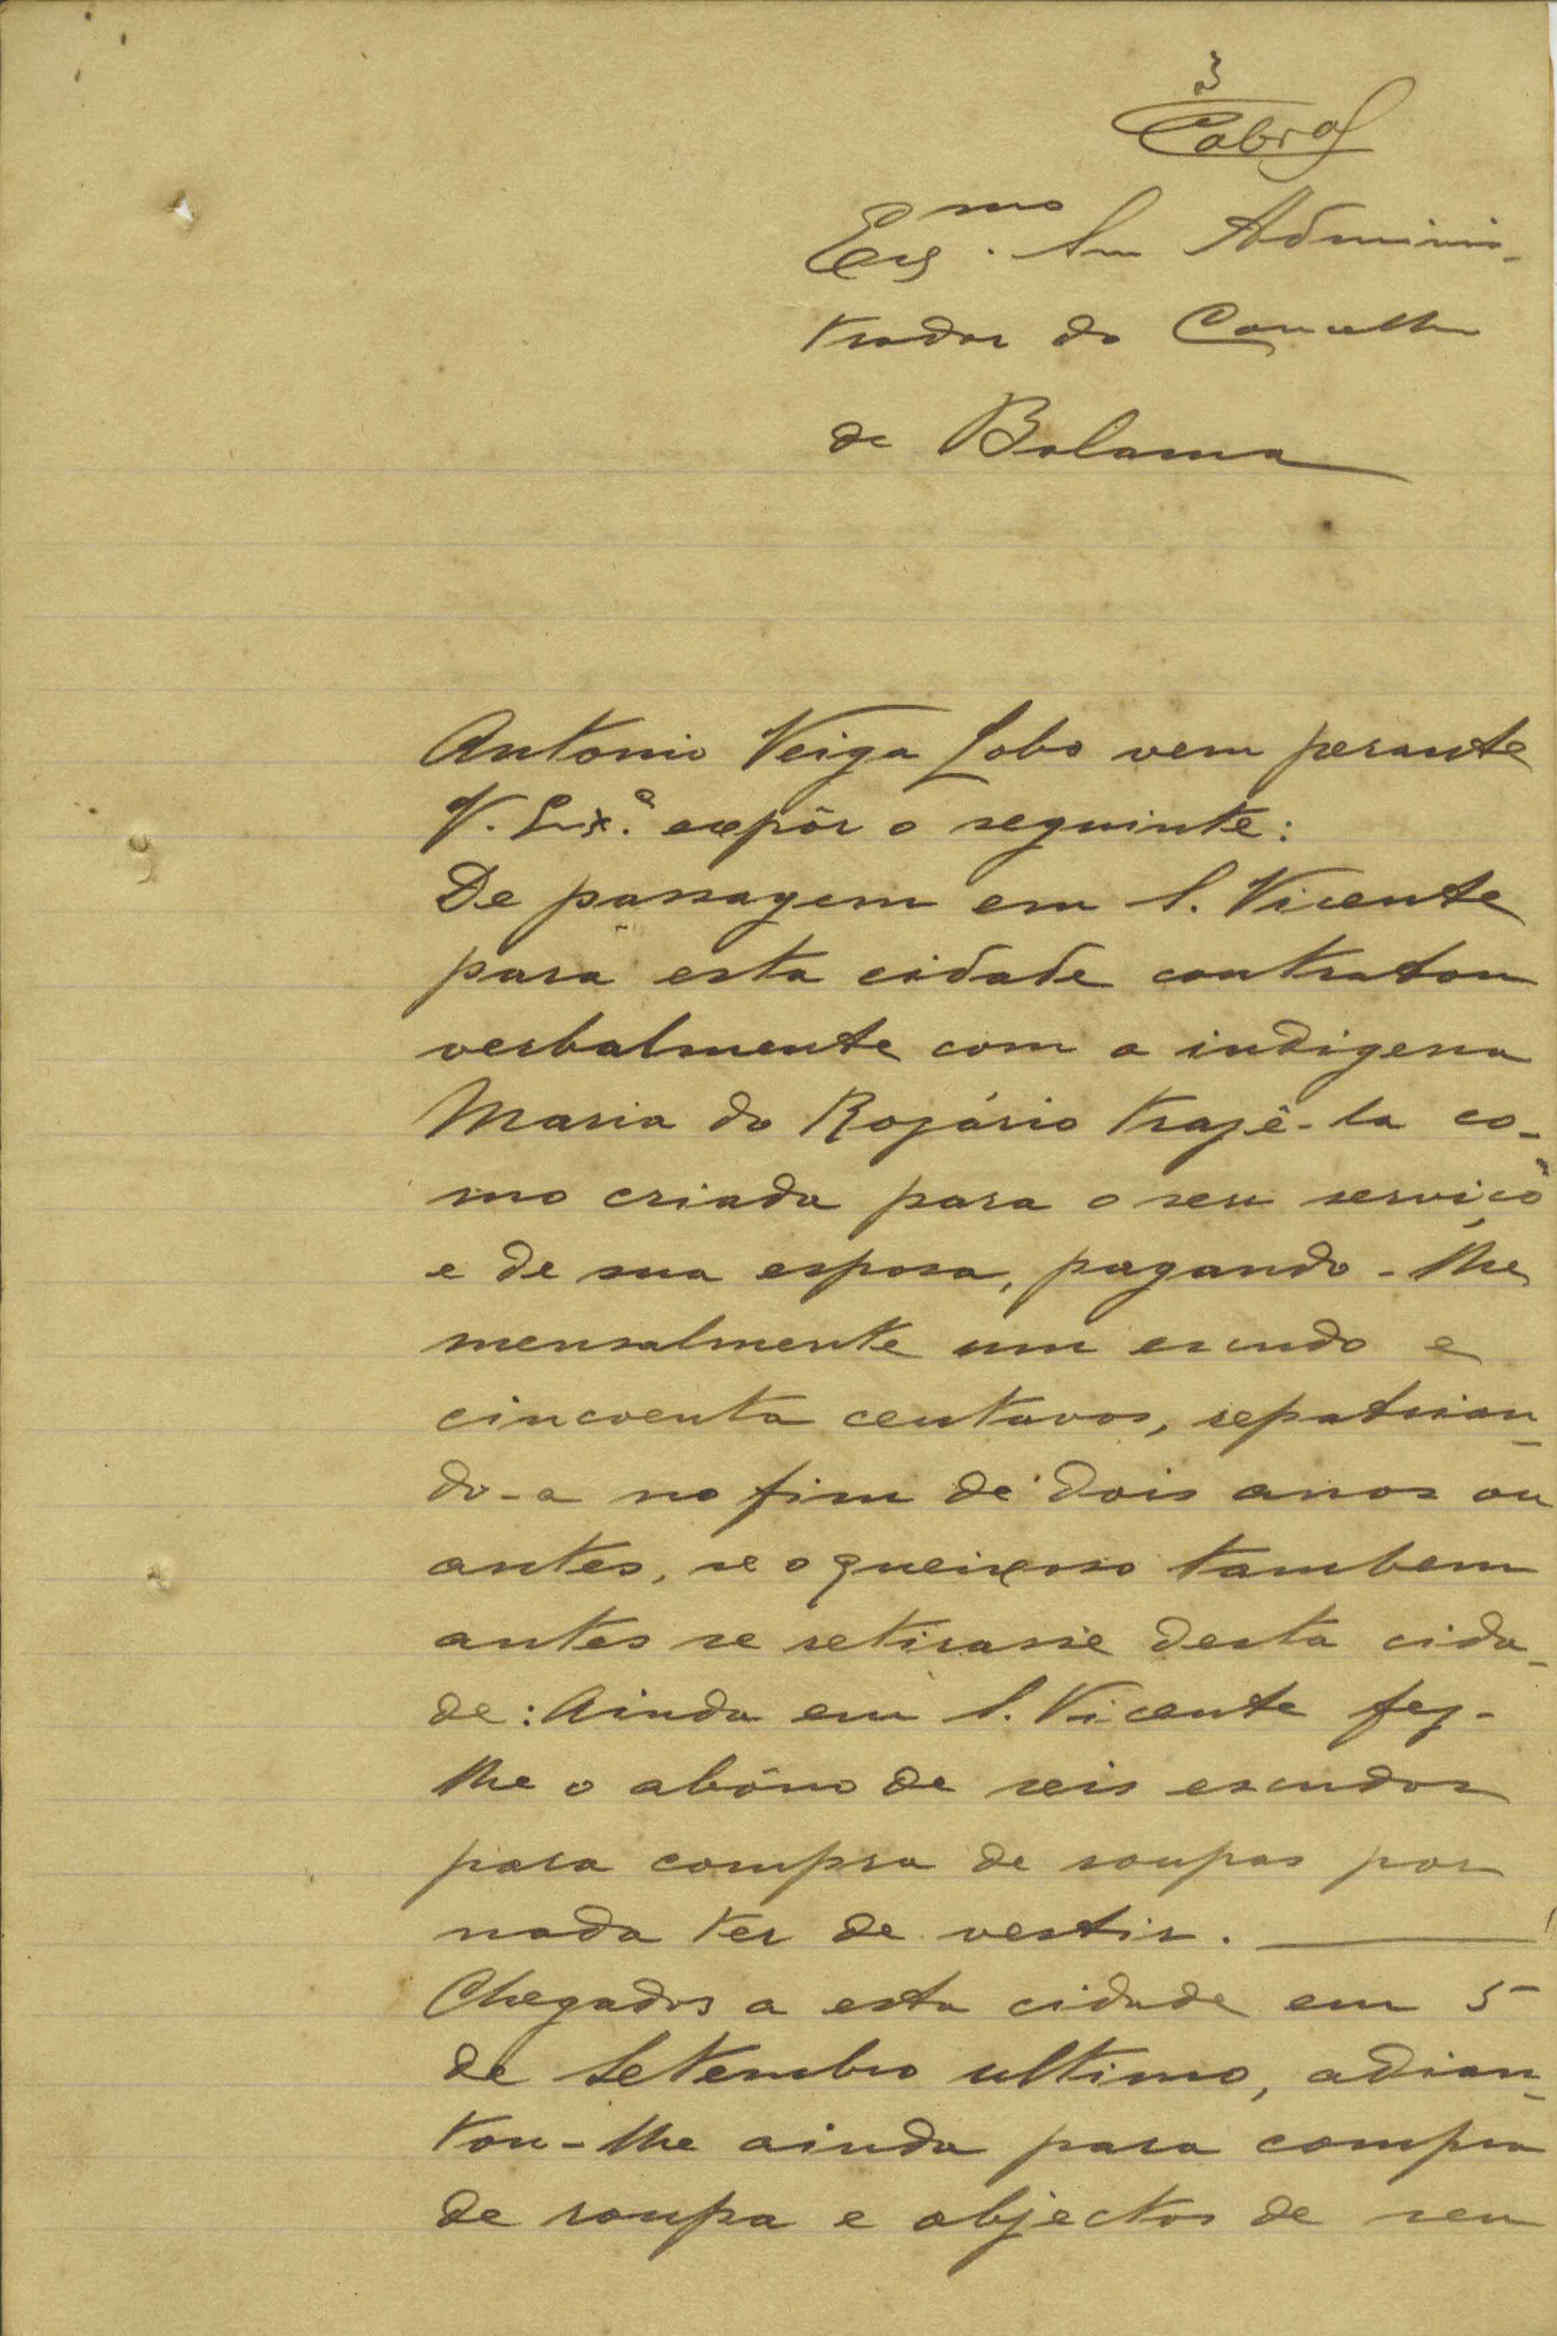 3
Cabral
Exmo. Snr Adminis-
trador do Concelho
de Bolama
Antonio Veiga Lobo vem perante
V. Ex.ª expôr o seguinte:
De passagem em S. Vicente
para esta cidade contratou
verbalmente com a indigena
Maria do Rozário trazê-la co-
mo criada para o seu serviço
e de sua esposa, pagando-lhe
mensalmente um escudo e
cincoenta centavos, repatrian-
do-a no fim de dois anos ou
antes, se o queixoso tambem
antes se retirasse desta cida-
de: Ainda em S. Vicente fez-
lhe o abôno de seis escudos
para compra de roupas por
nada ter de vestir.
Chegados a esta cidade em 5
de Setembro ultimo, adian-
tou-lhe ainda para compra
de roupa e objectos de seu